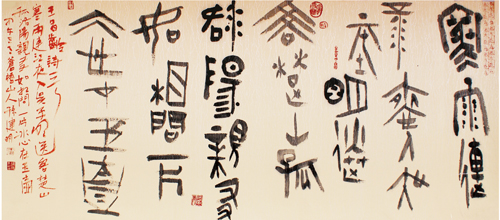 寒雨連
江夜入
吳平明送
客楚山孤
洛陽親友
如相問一片
冰心在玉壺
王昌齡詩
寒雨連江夜入吳平明送客楚山
孤洛陽親友如相問一片冰心在玉壺
山人